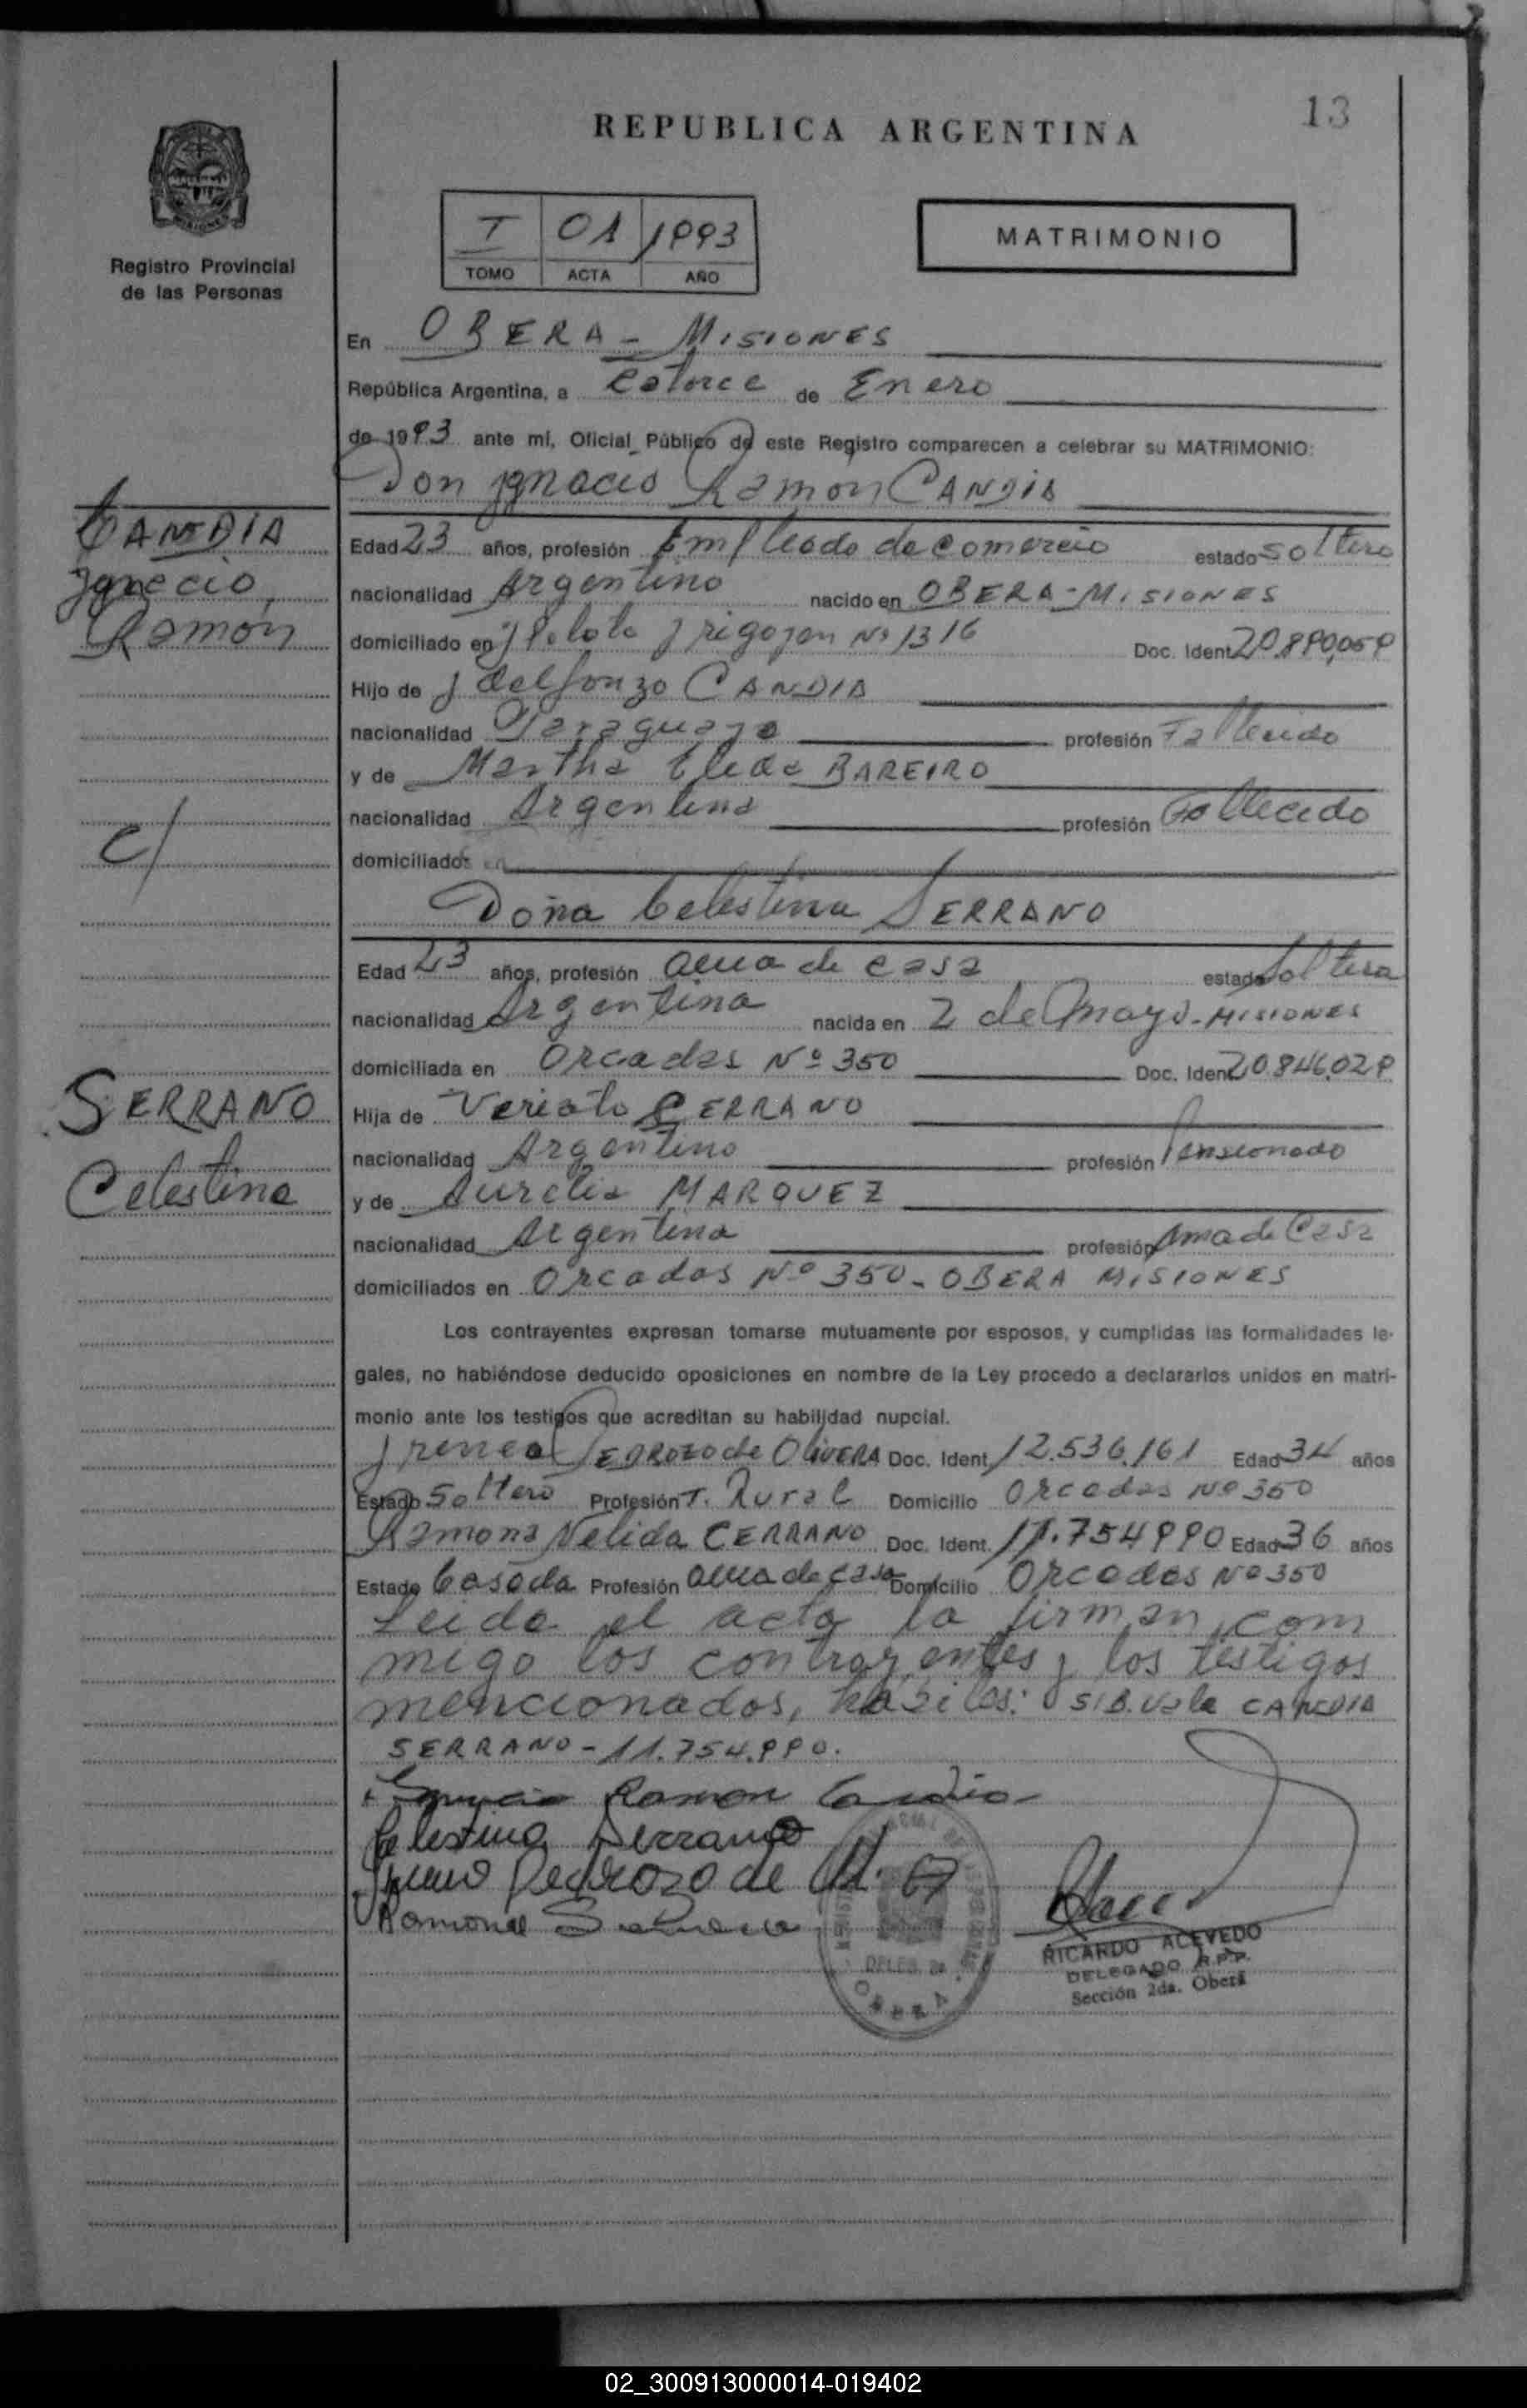 13
REPUBLICA ARGENTINA
Registro Provincial
de las Personas
T 01 1993
TOMO ACTA AÑO
MATRIMONIO
En OBERA - MISIONES
República Argentina, a Catorce de Enero
de 1993 ante mí, Oficial Público de este Registro comparecen a celebrar su MATRIMONIO:
Don Ignacio Ramón CANDIA
CANDIA
Ignacio,
Ramón
Edad 23 años, profesión Empleado de comercio estado soltero
nacionalidad Argentino nacido en OBERA - MISIONES
domiciliado en Irigoyen Nº 1316 Doc. Ident.
Hijo de Idelfonzo CANDIA
nacionalidad Paraguaya profesión Fallecido
y de Martha BAREIRO
nacionalidad Argentina profesión Fallecido
domiciliados en
c/
Doña Celestina SERRANO
Edad 23 años, profesión ama de casa estado Soltera
nacionalidad Argentina nacida en 2 de Mayo - MISIONES
domiciliada en Orcadas Nº 350 Doc. Ident. 20.846.029
SERRANO
Celestina
Hija de Veriato SERRANO
nacionalidad Argentino profesión Pensionado
y de Aurelia MARQUEZ
nacionalidad Argentina profesión Ama de Casa
domiciliados en Orcadas Nº 350 - OBERA MISIONES
Los contrayentes expresan tomarse mutuamente por esposos, y cumplidas las formalidades le-
gales, no habiéndose deducido oposiciones en nombre de la Ley procedo a declararlos unidos en matri-
monio ante los testigos que acreditan su habilidad nupcial.
Ireneo PEDROZO de OLIVERA Doc. Ident. 12.536.161 Edad 34 años
Estado Soltero Profesión T. Rural Domicilio Orcadas Nº 350
Ramona Nelida CERRANO Doc. Ident. 11.754990 Edad 36 años
Estado Casada Profesión ama de casa Domicilio Orcadas Nº 350
Leida el acta la firman com
migo los contrayentes y los testigos
mencionados, habiles: S/B. Vale CANDIA
SERRANO - 11.754.990.
Ignacio Ramon Candia
Celestina Serrano
Ireneo Pedrozo de Ol.
Ramona
DELEG. 2a.
OBERA
RICARDO ACEVEDO
DELEGADO R.P.P.
Sección 2da. Oberá
02_300913000014-019402